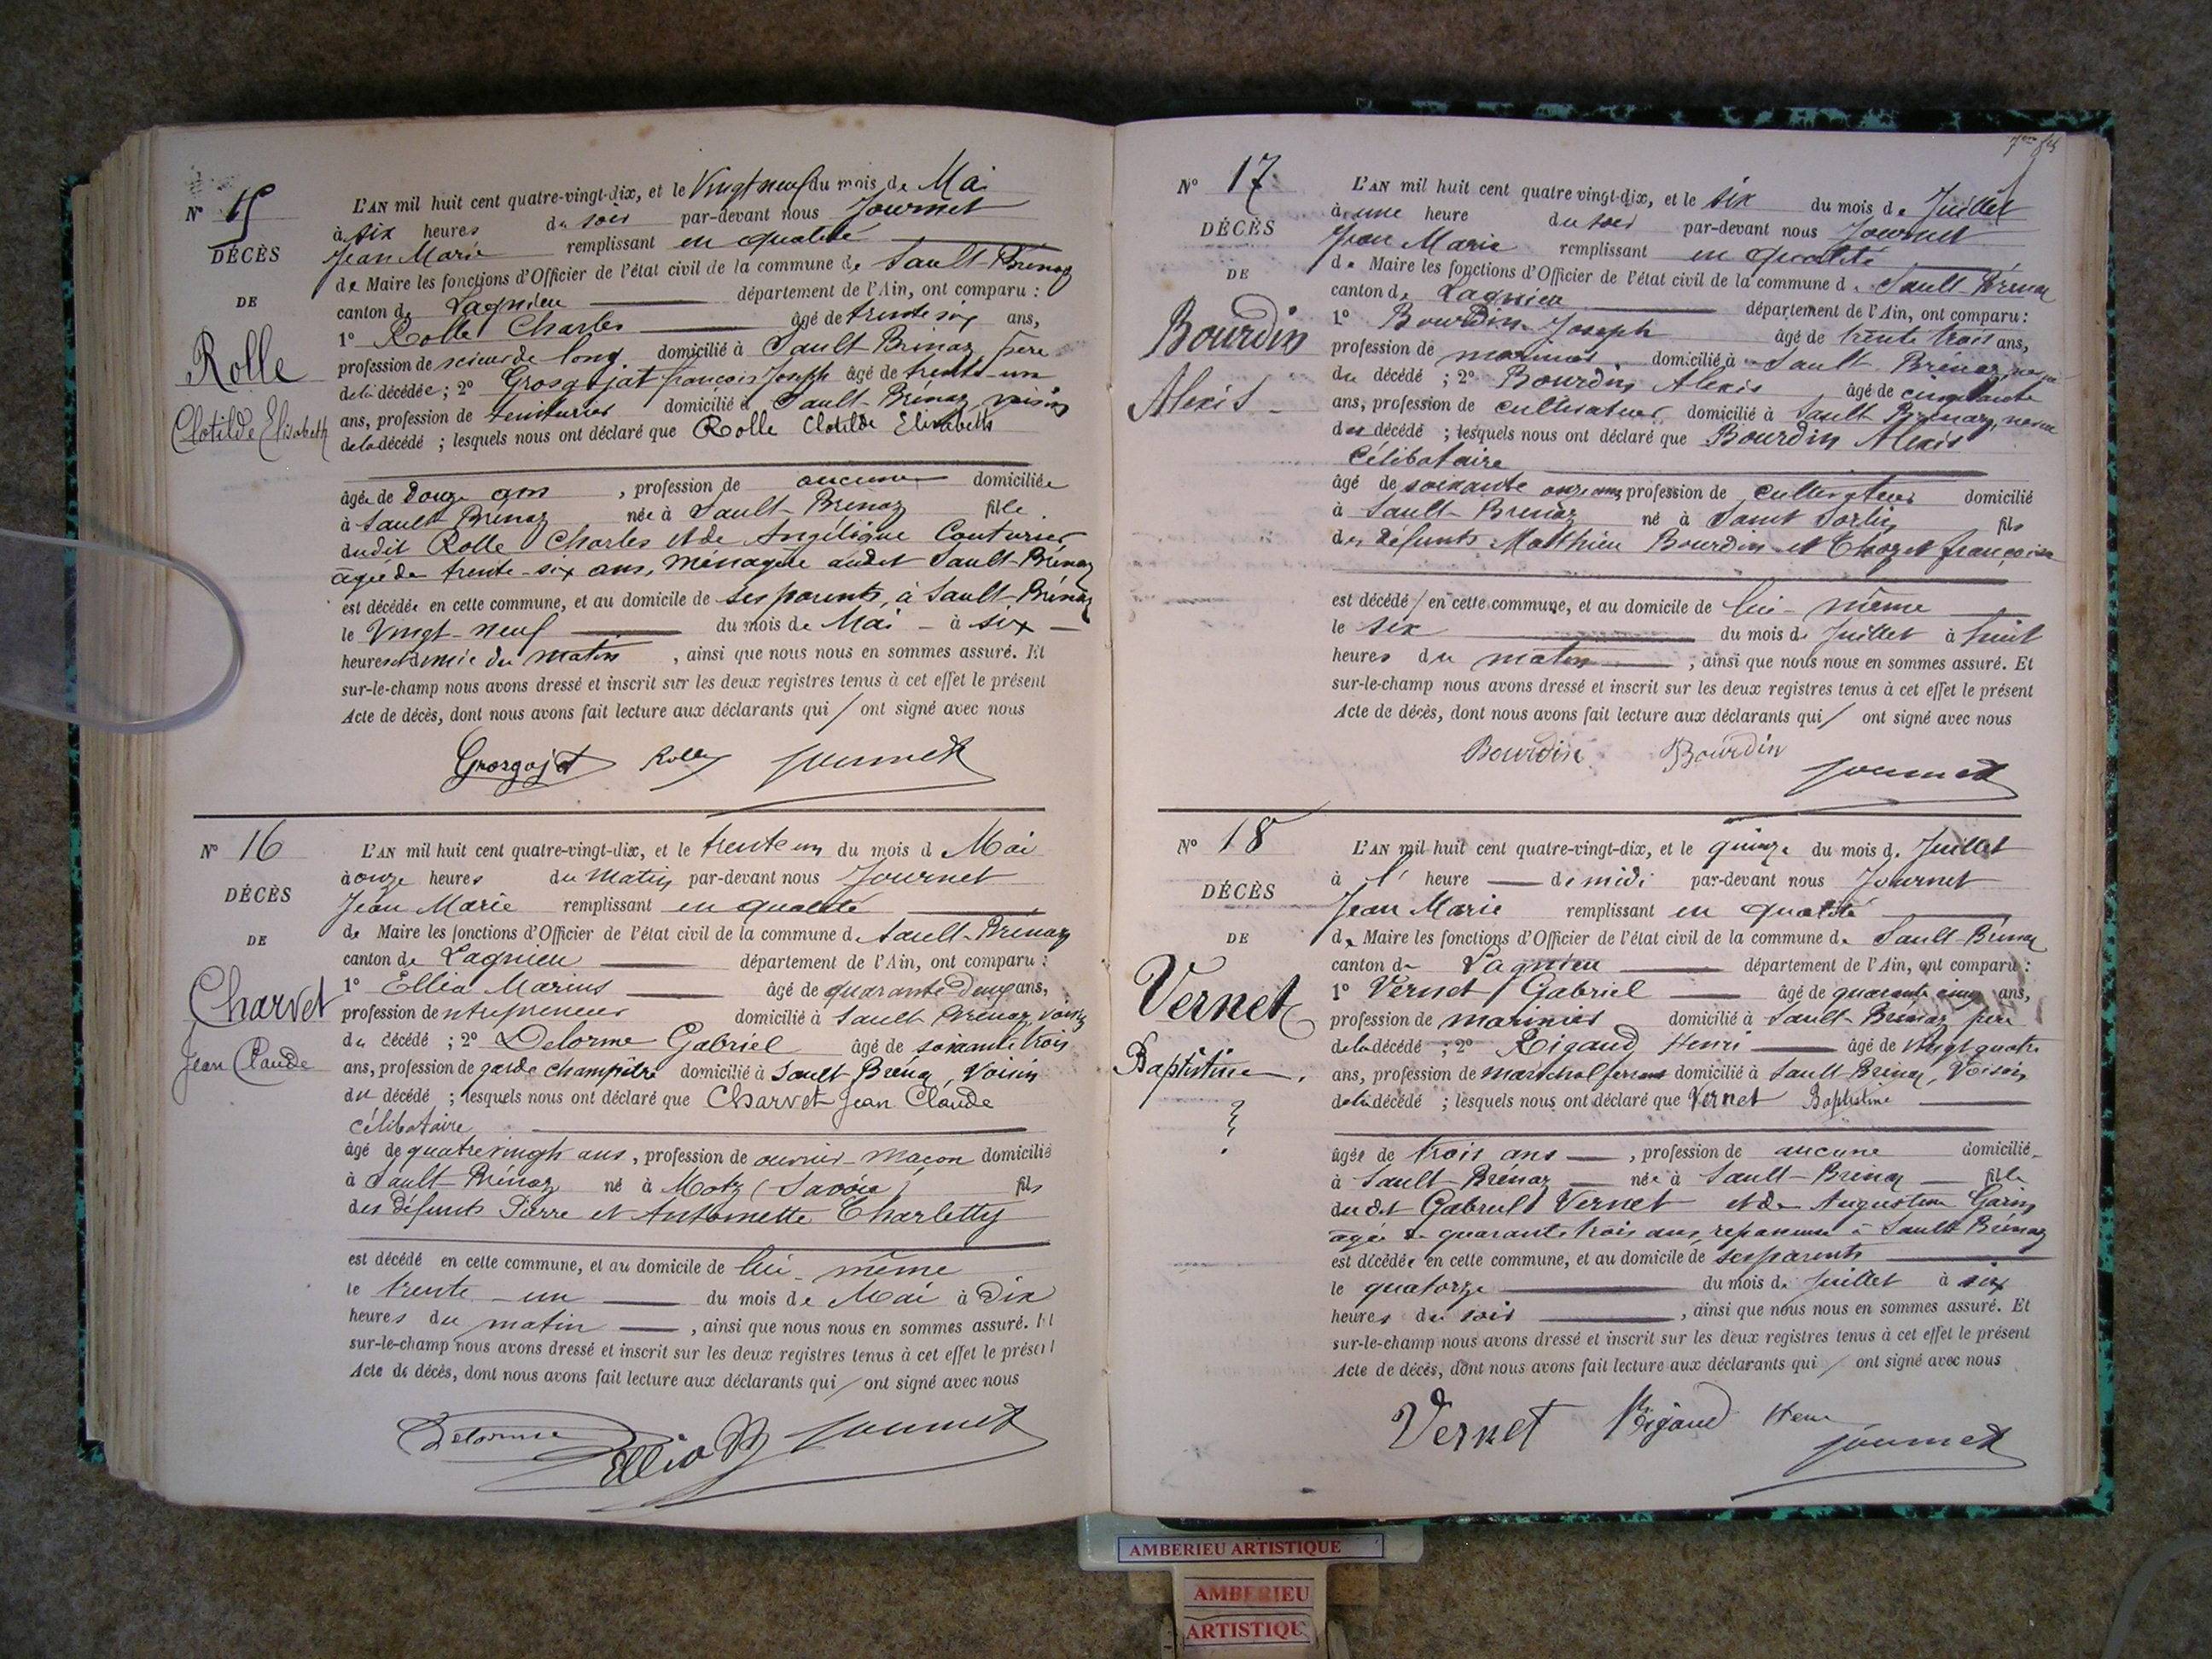 N° 15
DÉCÈS
DE
Rolle
Clotilde Elisabeth
L'AN mil huit cent quatre-vingt-dix, et le Vingt neuf du mois de Mai
à six heures du soir par-devant nous Journet
Jean Marie remplissant en qualité
de Maire les fonctions d'Officier de l'état civil de la commune de Sault-Brénaz
canton de Lagnieu département de l'Ain, ont comparu :
1° Rolle Charles âgé de trente six ans,
profession de scieur de long domicilié à Sault Brénaz, père
de la décédée ; 2° Grosgojat françois Joseph âgé de trente-un
ans, profession de teinturier domicilié à Sault-Brénaz, voisin
de la décédé ; lesquels nous ont déclaré que Rolle Clotilde Elisabeth
âgée de douze ans , profession de aucune domiciliée
à Sault Brénaz née à Sault-Brénaz fille
dudit Rolle Charles et de Angélique Couturier
agée de trente-six ans, ménagère audit Sault-Brénaz
est décédée en cette commune, et au domicile de ses parents, à Sault-Brénaz
le Vingt-neuf du mois de Mai - à six -
heures et demie du matin , ainsi que nous nous en sommes assuré. Et
sur-le-champ nous avons dressé et inscrit sur les deux registres tenus à cet effet le présent
Acte de décès, dont nous avons fait lecture aux déclarants qui / ont signé avec nous
Grosgojat Rolle Journet
N° 16
DÉCÈS
DE
Charvet
Jean Claude
L'AN mil huit cent quatre-vingt-dix, et le trente un du mois d Mai
à onze heures du Matin par-devant nous Journet
Jean Marie remplissant en qualité
de Maire les fonctions d'Officier de l'état civil de la commune d Sault-Brénaz
canton de Lagnieu département de l'Ain, ont comparu :
1° Ellia Marius âgé de quarante deux ans,
profession de ntrepreneur domicilié à Sault Brénaz, voisin
du décédé ; 2° Delorme Gabriel âgé de soixante trois
ans, profession de garde champêtre domicilié à Sault Brénaz, Voisin
du décédé ; lesquels nous ont déclaré que Charvet Jean Claude
célibataire
âgé de quatre vingts ans, profession de ouvrier-maçon domicilié
à Sault-Brénaz né à Motz (Savoie) fils
des défunts Pierre et Antoinette Charletty
est décédé en cette commune, et au domicile de lui-même
le trente-un du mois de Mai à Dix
heures du matin , ainsi que nous nous en sommes assuré. Et
sur-le-champ nous avons dressé et inscrit sur les deux registres tenus à cet effet le présent
Acte de décès, dont nous avons fait lecture aux déclarants qui / ont signé avec nous
Delorme Ellia M Journet
N° 17
DÉCÈS
DE
Bourdin
Alexis
L'AN mil huit cent quatre vingt-dix, et le six du mois de Juillet
à une heure du soir par-devant nous Journet
Jean Marie remplissant en qualité
de Maire les fonctions d'Officier de l'état civil de la commune d. Sault Brénaz
canton de Lagnieu département de l'Ain, ont comparu :
1° Bourdin Joseph âgé de trente trois ans,
profession de marinier domicilié à Sault Brénaz,
du décédé ; 2° Bourdin Alexis âgé de cinquante
ans, profession de cultivateur domicilié à Sault Brénaz, neveu
du décédé ; lesquels nous ont déclaré que Bourdin Alexis
Célibataire
âgé de soixante onze ans, profession de cultivateur domicilié
à Sault-Brénaz né à Saint Sorlin fils
des défunts Matthieu Bourdin et françoise
est décédé / en cette commune, et au domicile de lui-même
le six du mois de Juillet à huit
heures du matin , ainsi que nous nous en sommes assuré. Et
sur-le-champ nous avons dressé et inscrit sur les deux registres tenus à cet effet le présent
Acte de décès, dont nous avons fait lecture aux déclarants qui / ont signé avec nous
Bourdin Bourdin
Journet
N° 18
DÉCÈS
DE
Vernet
Baptistine
L'AN mil huit cent quatre-vingt-dix, et le quinze du mois d. Juillet
à l' heure de midi par-devant nous Journet
Jean Marie remplissant en qualité
de Maire les fonctions d'Officier de l'état civil de la commune de Sault-Brénaz
canton de Lagnieu département de l'Ain, ont comparu :
1° Vernet Gabriel âgé de quarante cinq ans,
profession de marinier domicilié à Sault-Brénaz père
de la décédé ; 2° Rigaud Henri âgé de vingt quatre
ans, profession de marechal ferrant domicilié à Sault-Brénaz, Voisin
de la décédé ; lesquels nous ont déclaré que Vernet Baptistine
âgée de trois ans , profession de aucune domicilié
à Sault-Brénaz née à Sault-Brénaz fille
dudit Gabriel Vernet et de Augustine Garin
agée de quarante trois ans, à Sault Brénaz
est décédée en cette commune, et au domicile de ses parents
le quatorze du mois de juillet à six
heures du soir , ainsi que nous nous en sommes assuré. Et
sur-le-champ nous avons dressé et inscrit sur les deux registres tenus à cet effet le présent
Acte de décès, dont nous avons fait lecture aux déclarants qui / ont signé avec nous
Vernet Rigaud Henri
Journet
AMBERIEU ARTISTIQUE
AMBERIEU
ARTISTIQU